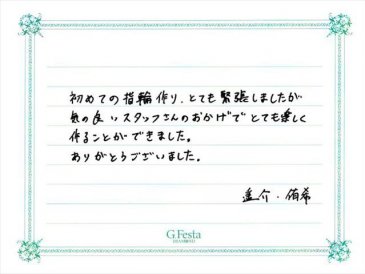 初めての指輪作り、とても緊張しましたが
気の良いスタッフさんのおかげでとても楽しく
作ることができました。
ありがとうございました。
遥介・侑希
G.Festa
DIAMOND